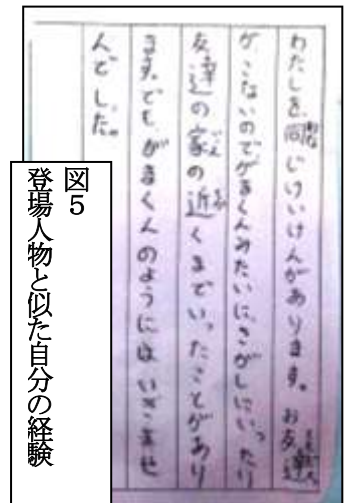 わたしも同じけいけんがあります。お友達
が、こないのでがまくんみたいに、さがしにいったり
友達の家の近くまでいったことがあり
ます。でもがまくんのようにはいきませ
んでした。
図5
登場人物と似た自分の経験